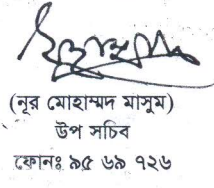 (নূর মোহাম্মদ মাসুম)
উপ সচিব
ফোনঃ ৯৫ ৬৯ ৭২৬